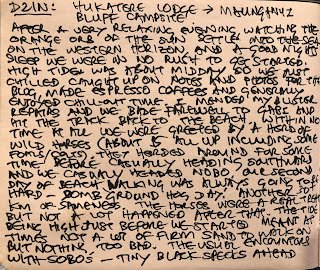 D2 IN: HUKATERE LODGE → MAUNGANUI
BLUFF CAMPSITE.
AFTER A VERY RELAXING EVENING WATCHING THE
ORANGE ORB OF THE SUN SETTLE INTO THE SEA
ON THE WESTERN HORIZON AND A GOOD NIGHTS
SLEEP WE WERE IN NO RUSH TO GET STARTED.
HIGH TIDE WAS ABOUT MIDDAY SO WE JUST
CHILLED, CAUGHT UP ON NOTES AND PHOTOS FOR THE
BLOG, MADE ESPRESSO COFFEES AND GENERALLY
ENJOYED CHILL-OUT TIME. I MENDED MY BLISTER
REPAIRS AND WE BADE FAREWELL TO GABI AND
HIT THE TRACK BACK TO THE BEACH. WITHIN NO
TIME AT ALL WE WERE GREETED BY A HERD OF
WILD HORSES (ABOUT ALL UP INCLUDING SOME
FOALS/COLTS) THEY HERDED AROUND FOR SOME
TIME BEFORE CASUALLY HEADING SOUTHWARD
AND WE CASUALLY HEADED NOBO. OUR SECOND
DAY OF BEACH WALKING WAS ALWAYS GOING TO BE
HARD - BOMB GROUND HOG DAY. ANOTHER
KM OF SAMENESS. THE HORSES WERE A REAL TREAT
BUT NOT A LOT HAPPENED AFTER THAT. THE TIDE
BEING HIGH JUST BEFORE WE STARTED MEANT AT
TIMES NOT A LOT OF FIRM SAND TO WALK ON
BUT NOTHING TOO BAD. THE USUAL ENCOUNTERS
WITH SOBO'S - TINY BLACK SPECKS AHEAD